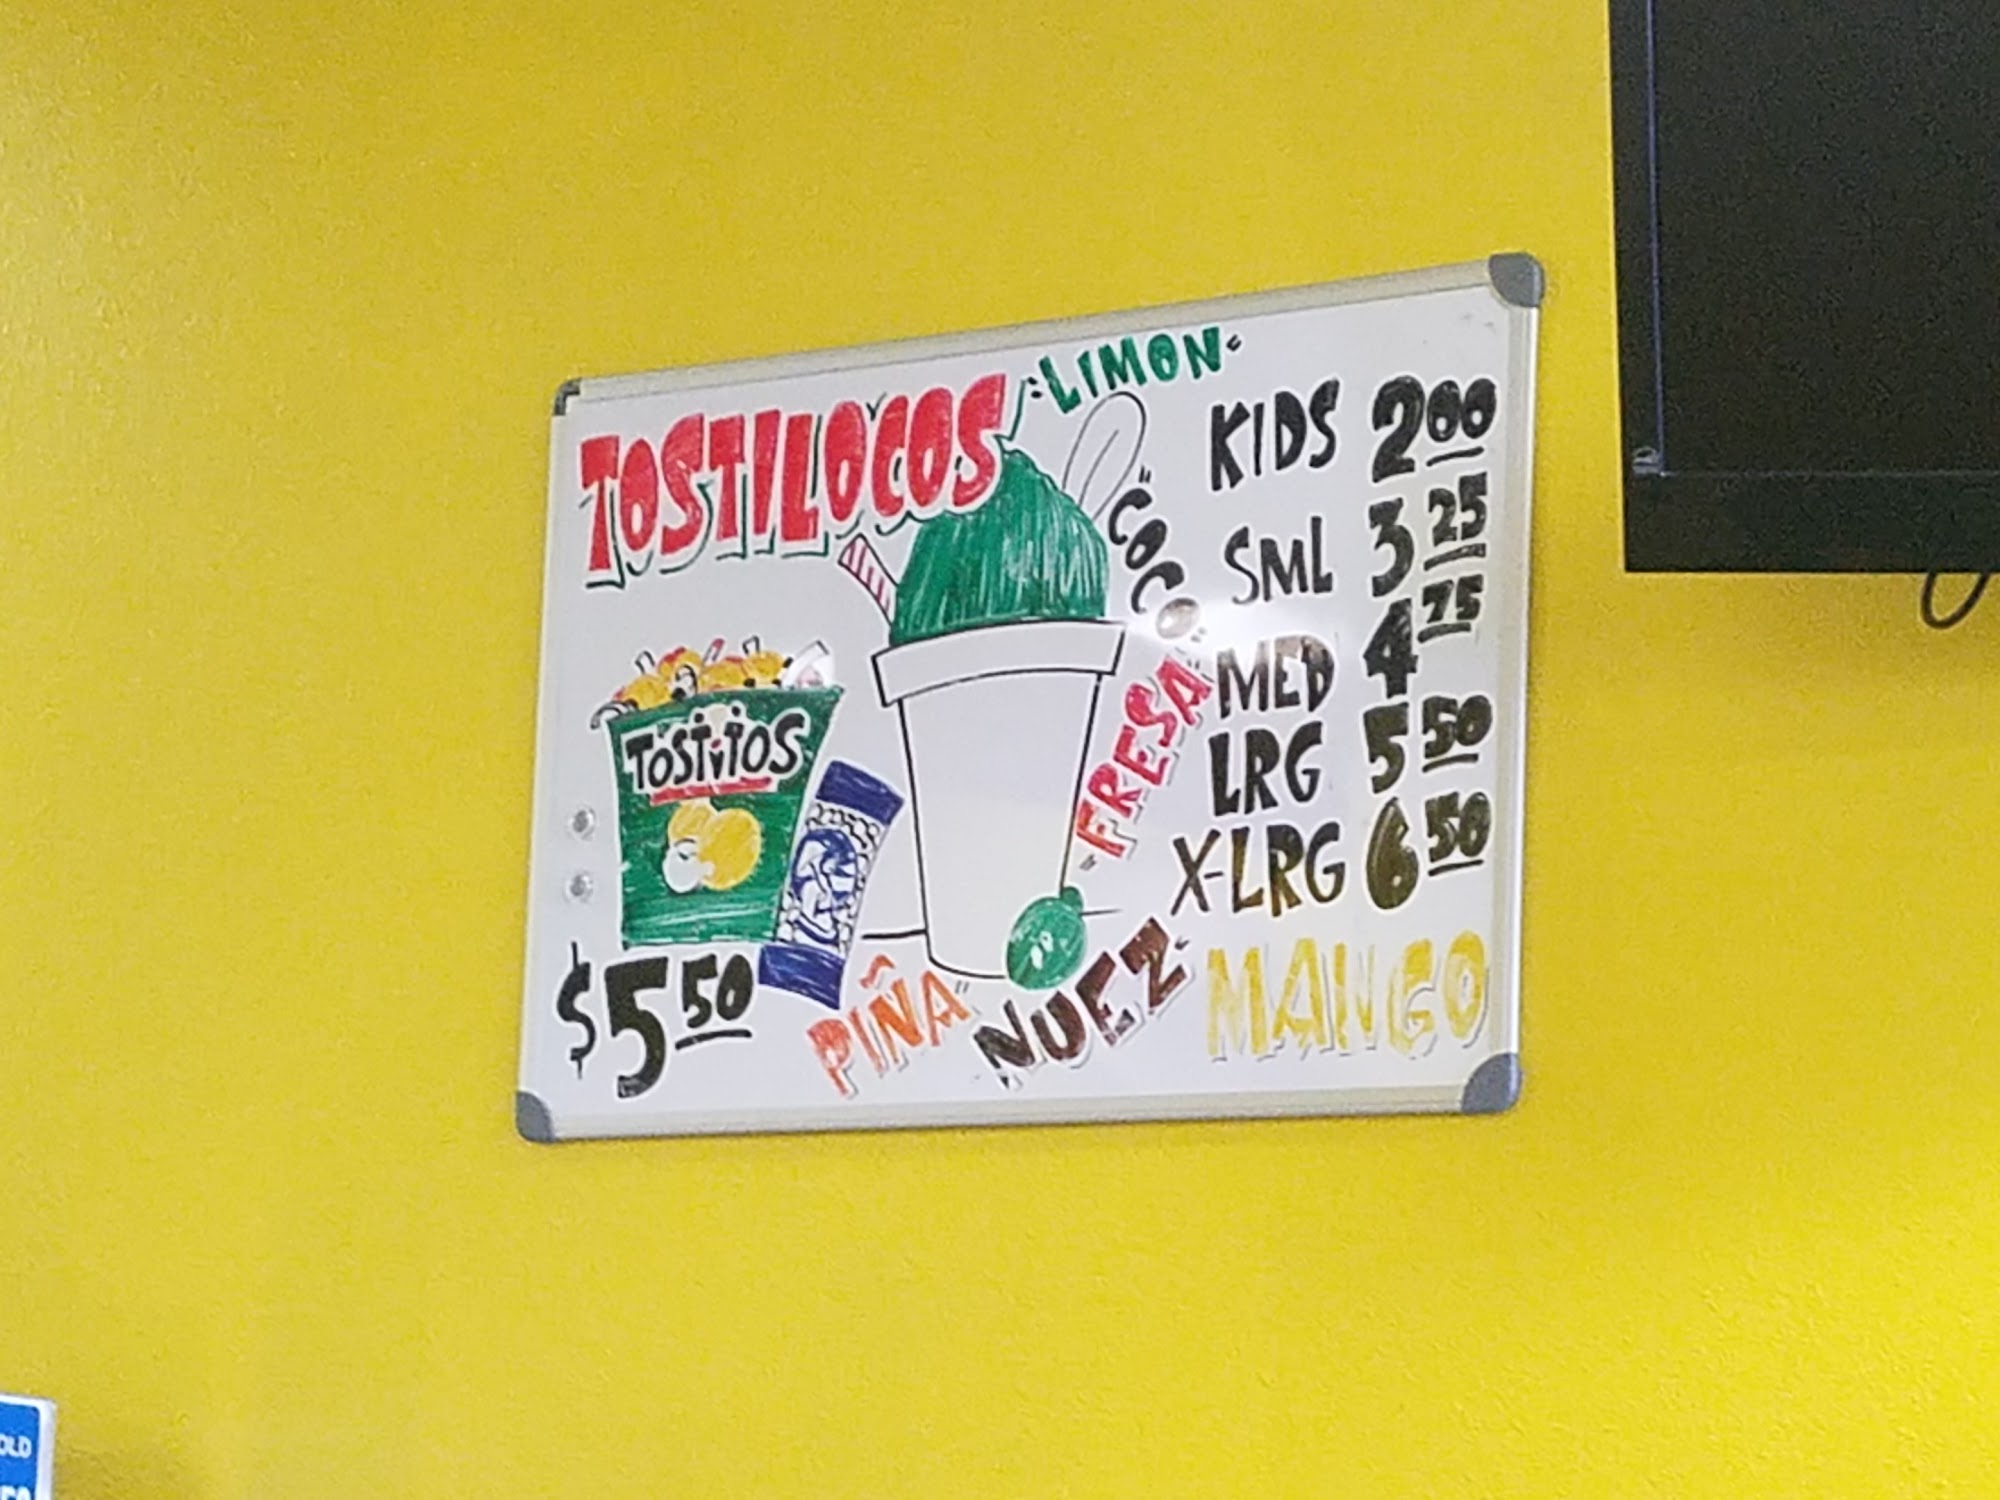 TOSTILOCOS
"LIMON"
"COCO"
"FRESA"
KIDS 2.00
SML 3.25
MED 4.75
LRG 5.50
X-LRG 6.50
TOSTITOS
$5.50
PIÑA"
NUEZ"
MANGO
OLD